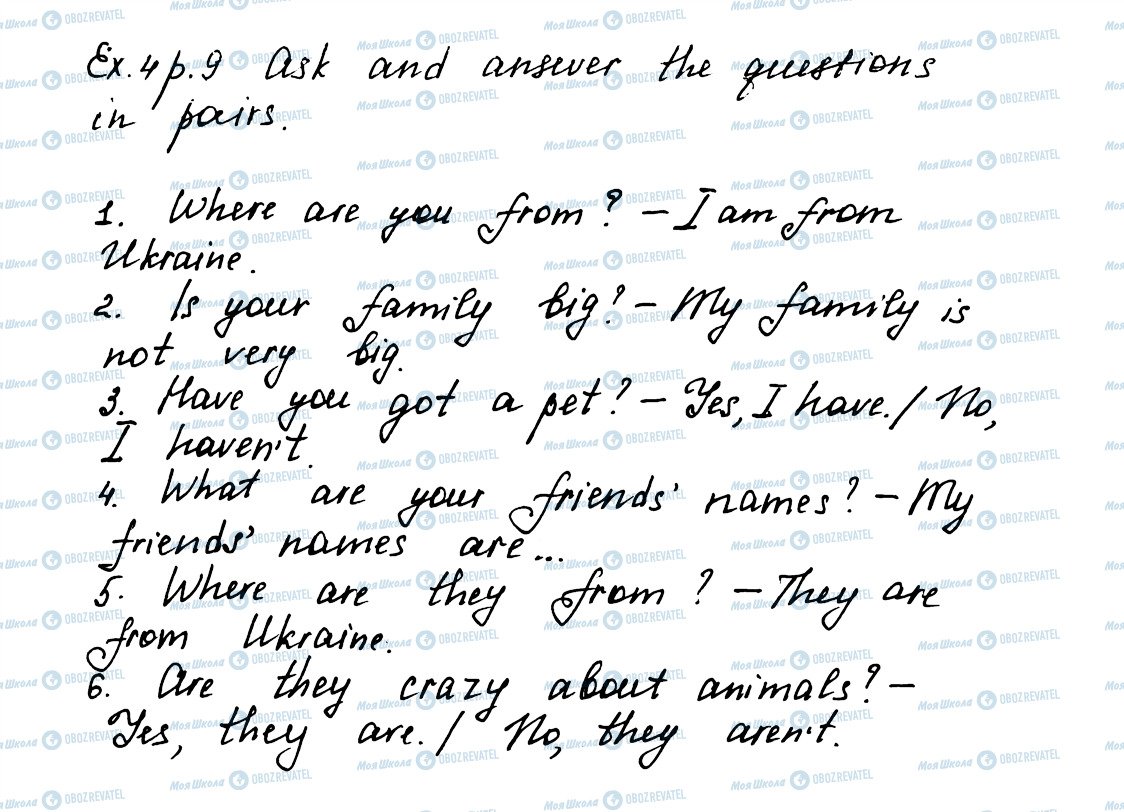 Ex. 4 p. 9 Ask and answer the questions
in pairs.
1. Where are you from? – I am from
Ukraine.
2. Is your family big? – My family is
not very big.
3. Have you got a pet? – Yes, I have. / No,
I haven't.
4. What are your friends' names? – My
friends' names are...
5. Where are they from? – They are
from Ukraine.
6. Are they crazy about animals? –
Yes, they are. / No, they aren't.
МояШкола OBOZREVATEL